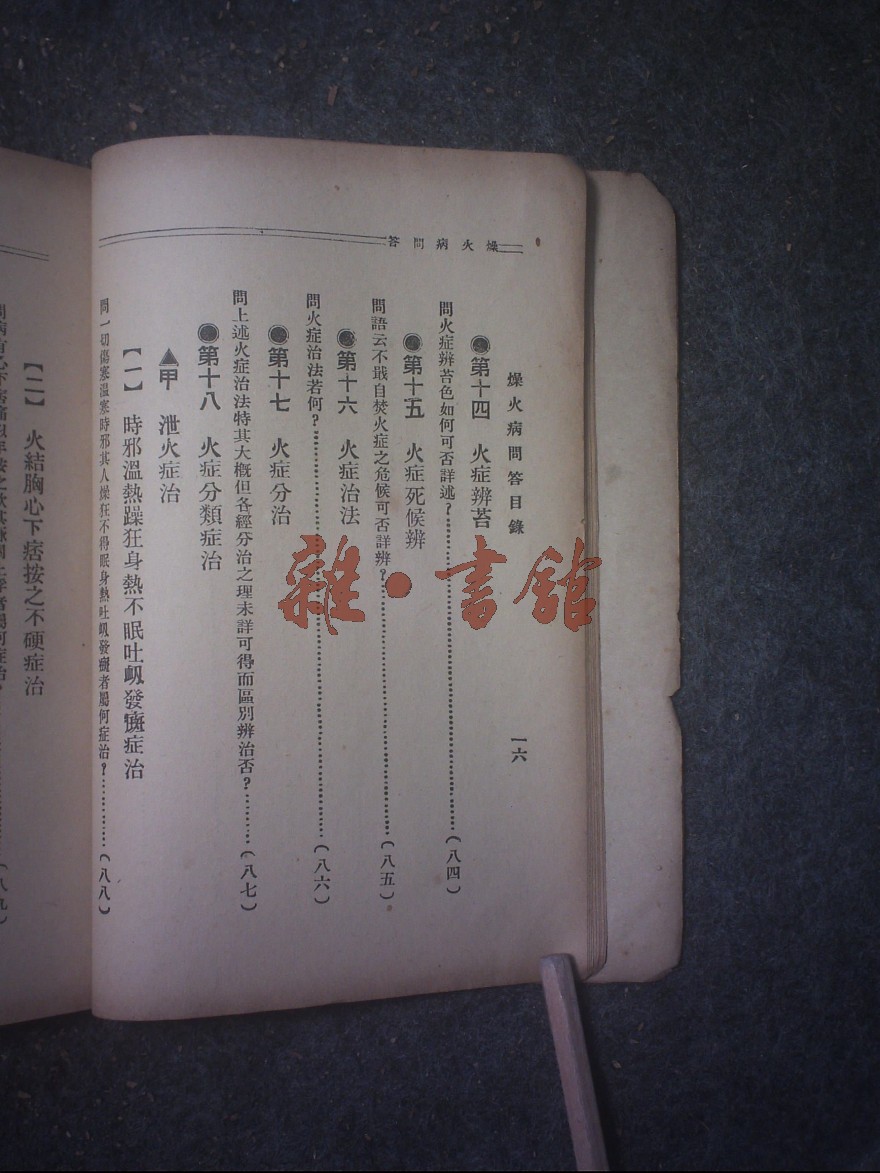 燥火病問答
燥火病問答目錄
一六
●第十四 火症辨苔
問火症辨苔色如何可否詳述？……（八四）
●第十五 火症死候辨
問語云不戢自焚火症之危候可否詳辨？……（八五）
●第十六 火症治法
問火症治法若何？……（八六）
●第十七 火症分治
問上述火症治法特其大概但各經分治之理未詳可得而區別辨治否？……（八七）
●第十八 火症分類症治
▲甲 泄火症治
【一】 時邪溫熱躁狂身熱不眠吐衄發癍症治
問一切傷寒溫寒時邪其人燥狂不得眠身熱吐衄發癍者屬何症治？……（八八）
【二】 火結胸心下痞按之不硬症治
雜·書館